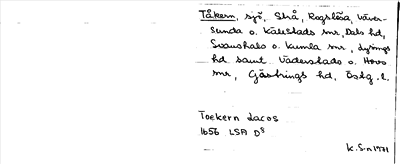 Tåkern, sjö, Strå, Rogslösa, Väver-
sunda o. Källstads snr, Dals hd,
Svanshals o. Kumla snr, Lysings
hd samt Väderstads o. Hovs
snr, Göstrings hd, Östg. l.
Toekern Lacos
1656 LSA D8
K.S-n 1971